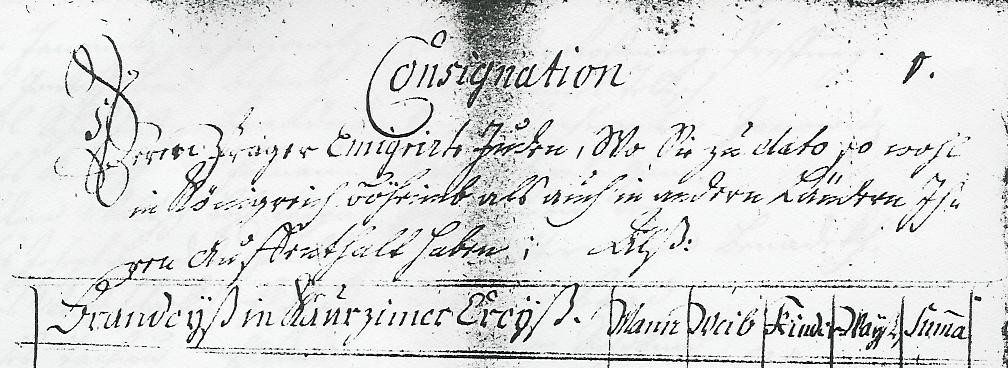 Consignation 1.
Deren Prager Emigrirte Juden, Wo Sie zu dato so wohl
in Königreich Böheimb als auch in andern Ländern Ih
ren Auffenthalt haben; Alß:
Brandeyß in Kaurzimer Creyß. Mann Weib Kinder Sum̄a